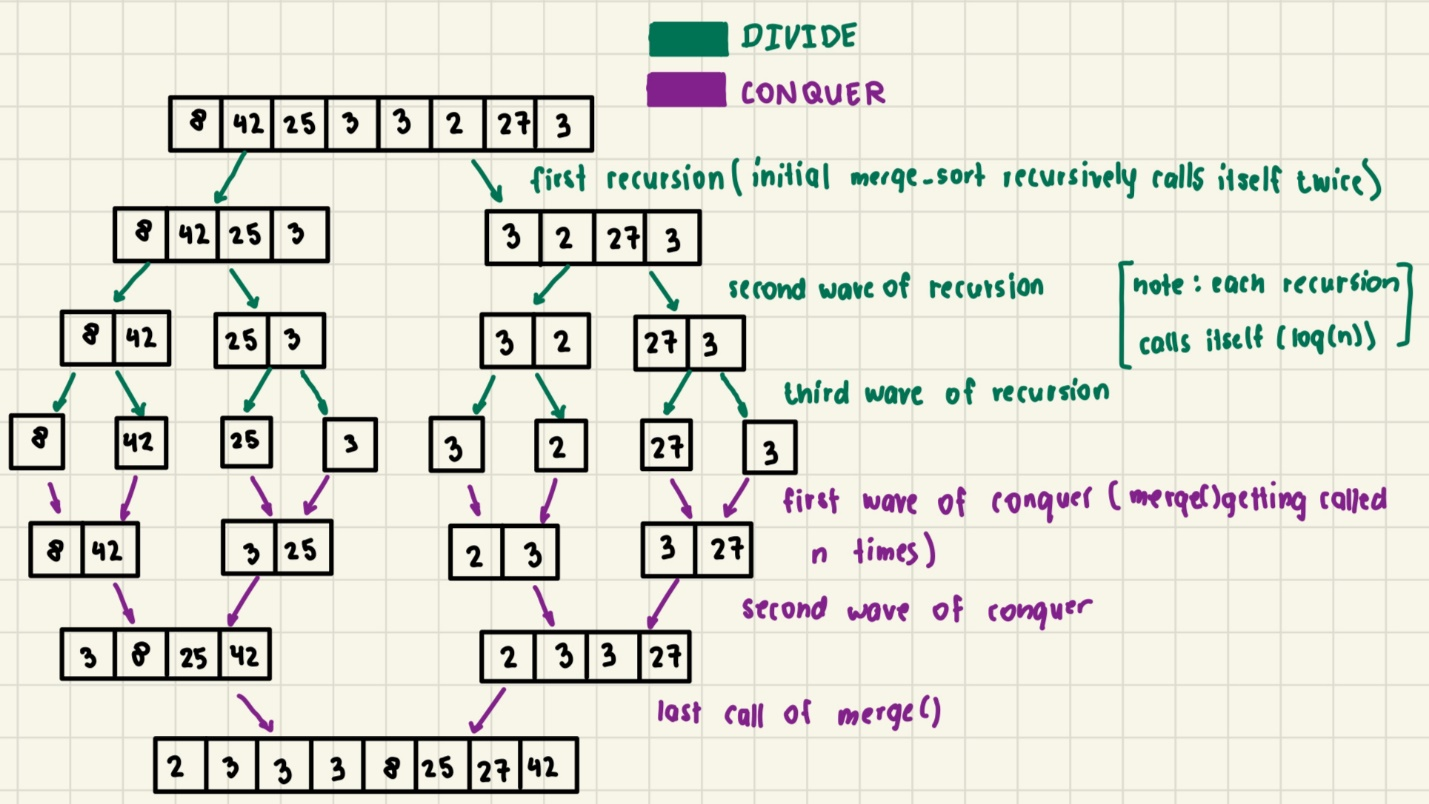 DIVIDE
CONQUER
8 42 25 3 3 2 27 3
first recursion (initial merge-sort recursively calls itself twice)
8 42 25 3 3 2 27 3
second wave of recursion
[note: each recursion
calls itself (log(n))]
8 42 25 3 3 2 27 3
third wave of recursion
8 42 25 3 3 2 27 3
first wave of conquer (merge() getting called
n times)
8 42 3 25 2 3 3 27
second wave of conquer
3 8 25 42 2 3 3 27
last call of merge()
2 3 3 3 8 25 27 42